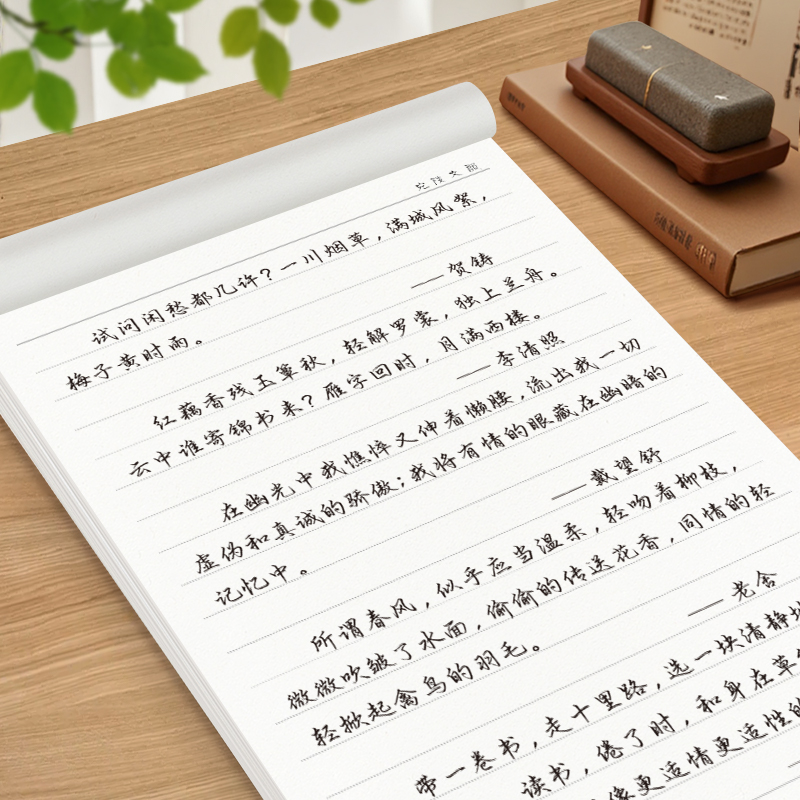 试问闲愁都几许？一川烟草，满城风絮，
梅子黄时雨。
——贺铸
红藕香残玉簟秋，轻解罗裳，独上兰舟。
云中谁寄锦书来？雁字回时，月满西楼。
——李清照
在幽光中我憔悴又伸着懒腰，流出我一切
虚伪和真诚的骄傲；我将有情的眼藏在幽暗的
记忆中。
——戴望舒
所谓春风，似乎应当温柔，轻吻着柳枝，
微微吹皱了水面，偷偷的传送花香，同情的轻
轻掀起禽鸟的羽毛。
——老舍
带一卷书，走十里路，选一块清静地
读书，倦了时，和身在草
像更适情更适性的